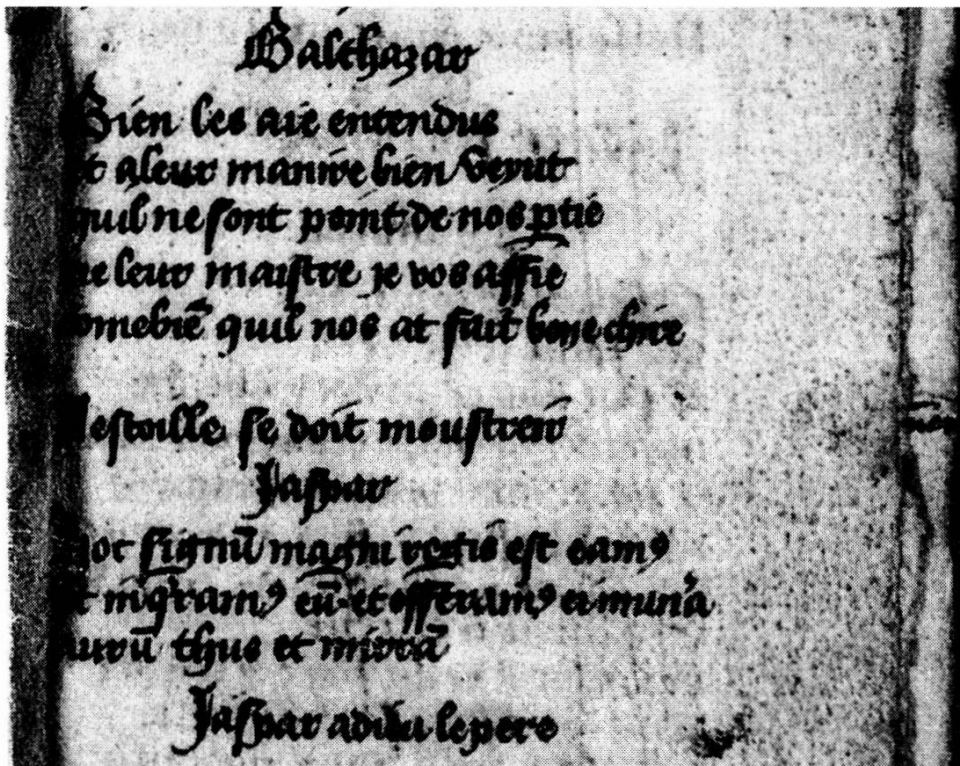 Balthazar
Bien les aie entendus
et aleur manire bien veyut
quil ne sont point de nos ptie
ne leur maistre je vos affie
comebiē quil nos at fait bone chire
Lestoille se doit moustreir
Jaspar
hoc signū magni regis est eamꝰ
et inqͥramꝰ eū et offeramꝰ ei munᷓa
aurū thus et mirrā
Jaspar adieu le pere